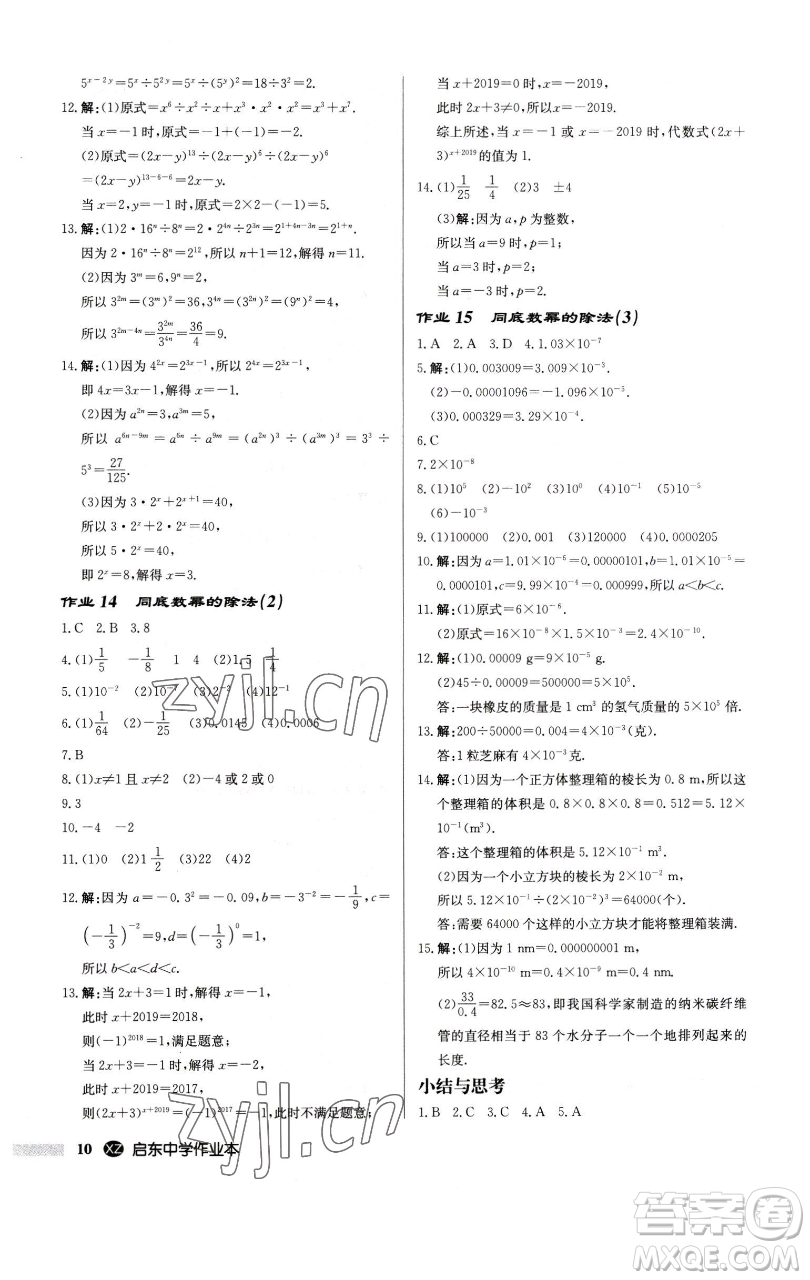 5^{x-2y}=5^x÷5^{2y}=5^x÷(5^y)^2=18÷3^2=2.
12.解:(1)原式=x^6÷x^2÷x+x^3·x^2·x^2=x^3+x^7.
当x=-1时,原式=(-1)+(-1)=-2.
(2)原式=(2x-y)^{13}÷(2x-y)^6÷(2x-y)^6
=(2x-y)^{13-6-6}=2x-y.
当x=2,y=-1时,原式=2×2-(-1)=5.
13.解:(1)2·16^n÷8^n=2·2^{4n}÷2^{3n}=2^{1+4n-3n}=2^{1+n}.
因为2·16^n÷8^n=2^{12},所以n+1=12,解得n=11.
(2)因为3^m=6,9^n=2,
所以3^{2m}=(3^m)^2=6^2=36,3^{4n}=(3^{2n})^2=(9^n)^2=4.
所以3^{2m-4n}=3^{2m}/3^{4n}=36/4=9.
14.解:(1)因为4^{2x}=2^{3x-1},所以2^{4x}=2^{3x-1},
即4x=3x-1,解得x=-1.
(2)因为a^{2n}=3,a^{3m}=5,
所以a^{6n-9m}=a^{6n}÷a^{9m}=(a^{2n})^3÷(a^{3m})^3=3^3÷
5^3=27/125.
(3)因为3·2^x+2^{x+1}=40,
所以3·2^x+2·2^x=40,
所以5·2^x=40,
即2^x=8,解得x=3.
作业14 同底数幂的除法(2)
1.C 2.B 3.8
4.(1)1/5 -1/8 1 4 (2)1.5 1/4
5.(1)10^{-2} (2)10^{-7} (3)2^{-2} (4)12^{-1}
6.(1)1/64 (2)-1/25 (3)0.0145 (4)0.0006
7.B
8.(1)x≠1且x≠2 (2)-4或2或0
9.3
10.-4 -2
11.(1)0 (2)1 1/2 (3)22 (4)2
12.解:因为a=-0.3^2=-0.09,b=-3^{-2}=-1/9,c=
(-1/3)^{-2}=9,d=(-1/3)^0=1,
所以b<a<d<c.
13.解:当2x+3=1时,解得x=-1,
此时x+2019=2018,
则(-1)^{2018}=1,满足题意;
当2x+3=-1时,解得x=-2,
此时x+2019=2017,
则(2x+3)^{x+2019}=(-1)^{2017}=-1,此时不满足题意;
10 XZ 启东中学作业本
当x+2019=0时,x=-2019,
此时2x+3≠0,所以x=-2019.
综上所述,当x=-1或x=-2019时,代数式(2x+
3)^{x+2019}的值为1.
14.(1)1/25 1/4 (2)3 ±4
(3)解:因为a,p为整数,
所以当a=9时,p=1;
当a=3时,p=2;
当a=-3时,p=2.
作业15 同底数幂的除法(3)
1.A 2.A 3.D 4.1.03×10^{-7}
5.解:(1)0.003009=3.009×10^{-3}.
(2)-0.00001096=-1.096×10^{-5}.
(3)0.000329=3.29×10^{-4}.
6.C
7.2×10^{-8}
8.(1)10^5 (2)-10^2 (3)10^0 (4)10^{-1} (5)-10^{-2}
(6)-10^{-3}
9.(1)100000 (2)0.001 (3)120000 (4)0.0000205
10.解:因为a=1.01×10^{-6}=0.00000101,b=1.01×10^{-5}=
0.0000101,c=9.99×10^{-4}=0.000999,所以a<b<c.
11.解:(1)原式=6×10^{-8}.
(2)原式=16×10^{-8}×1.5×10^4=2.4×10^{-3}.
12.解:(1)0.00009 g=9×10^{-5} g.
(2)45÷0.00009=500000=5×10^5.
答:一块橡皮的质量是1 cm^3的氢气质量的5×10^5倍.
13.解:200÷50000=0.004=4×10^{-3}(克).
答:1粒芝麻有4×10^{-3}克.
14.解:(1)因为一个正方体整理箱的棱长为0.8 m,所以
这个整理箱的体积是0.8×0.8×0.8=0.512=5.12×
10^{-1}(m^3).
答:这个整理箱的体积是5.12×10^{-1} m^3.
(2)因为一个小立方块的棱长为2×10^{-2} m,
所以5.12×10^{-1}÷(2×10^{-2})^3=64000(个).
答:需要64000个这样的小立方块才能将整理箱装满.
15.解:(1)因为1 nm=0.000000001 m,
所以4×10^{-10} m=0.4×10^{-9} m=0.4 nm.
(2)33/0.4=82.5≈83,即我国科学家制造的纳米碳纤维
管的直径相当于83个水分子一个一个地排列起来的
长度.
小结与思考
1.B 2.C 3.C 4.A 5.A
zyjl.cn
zyjl.cn
答案圈
MXQE.COM